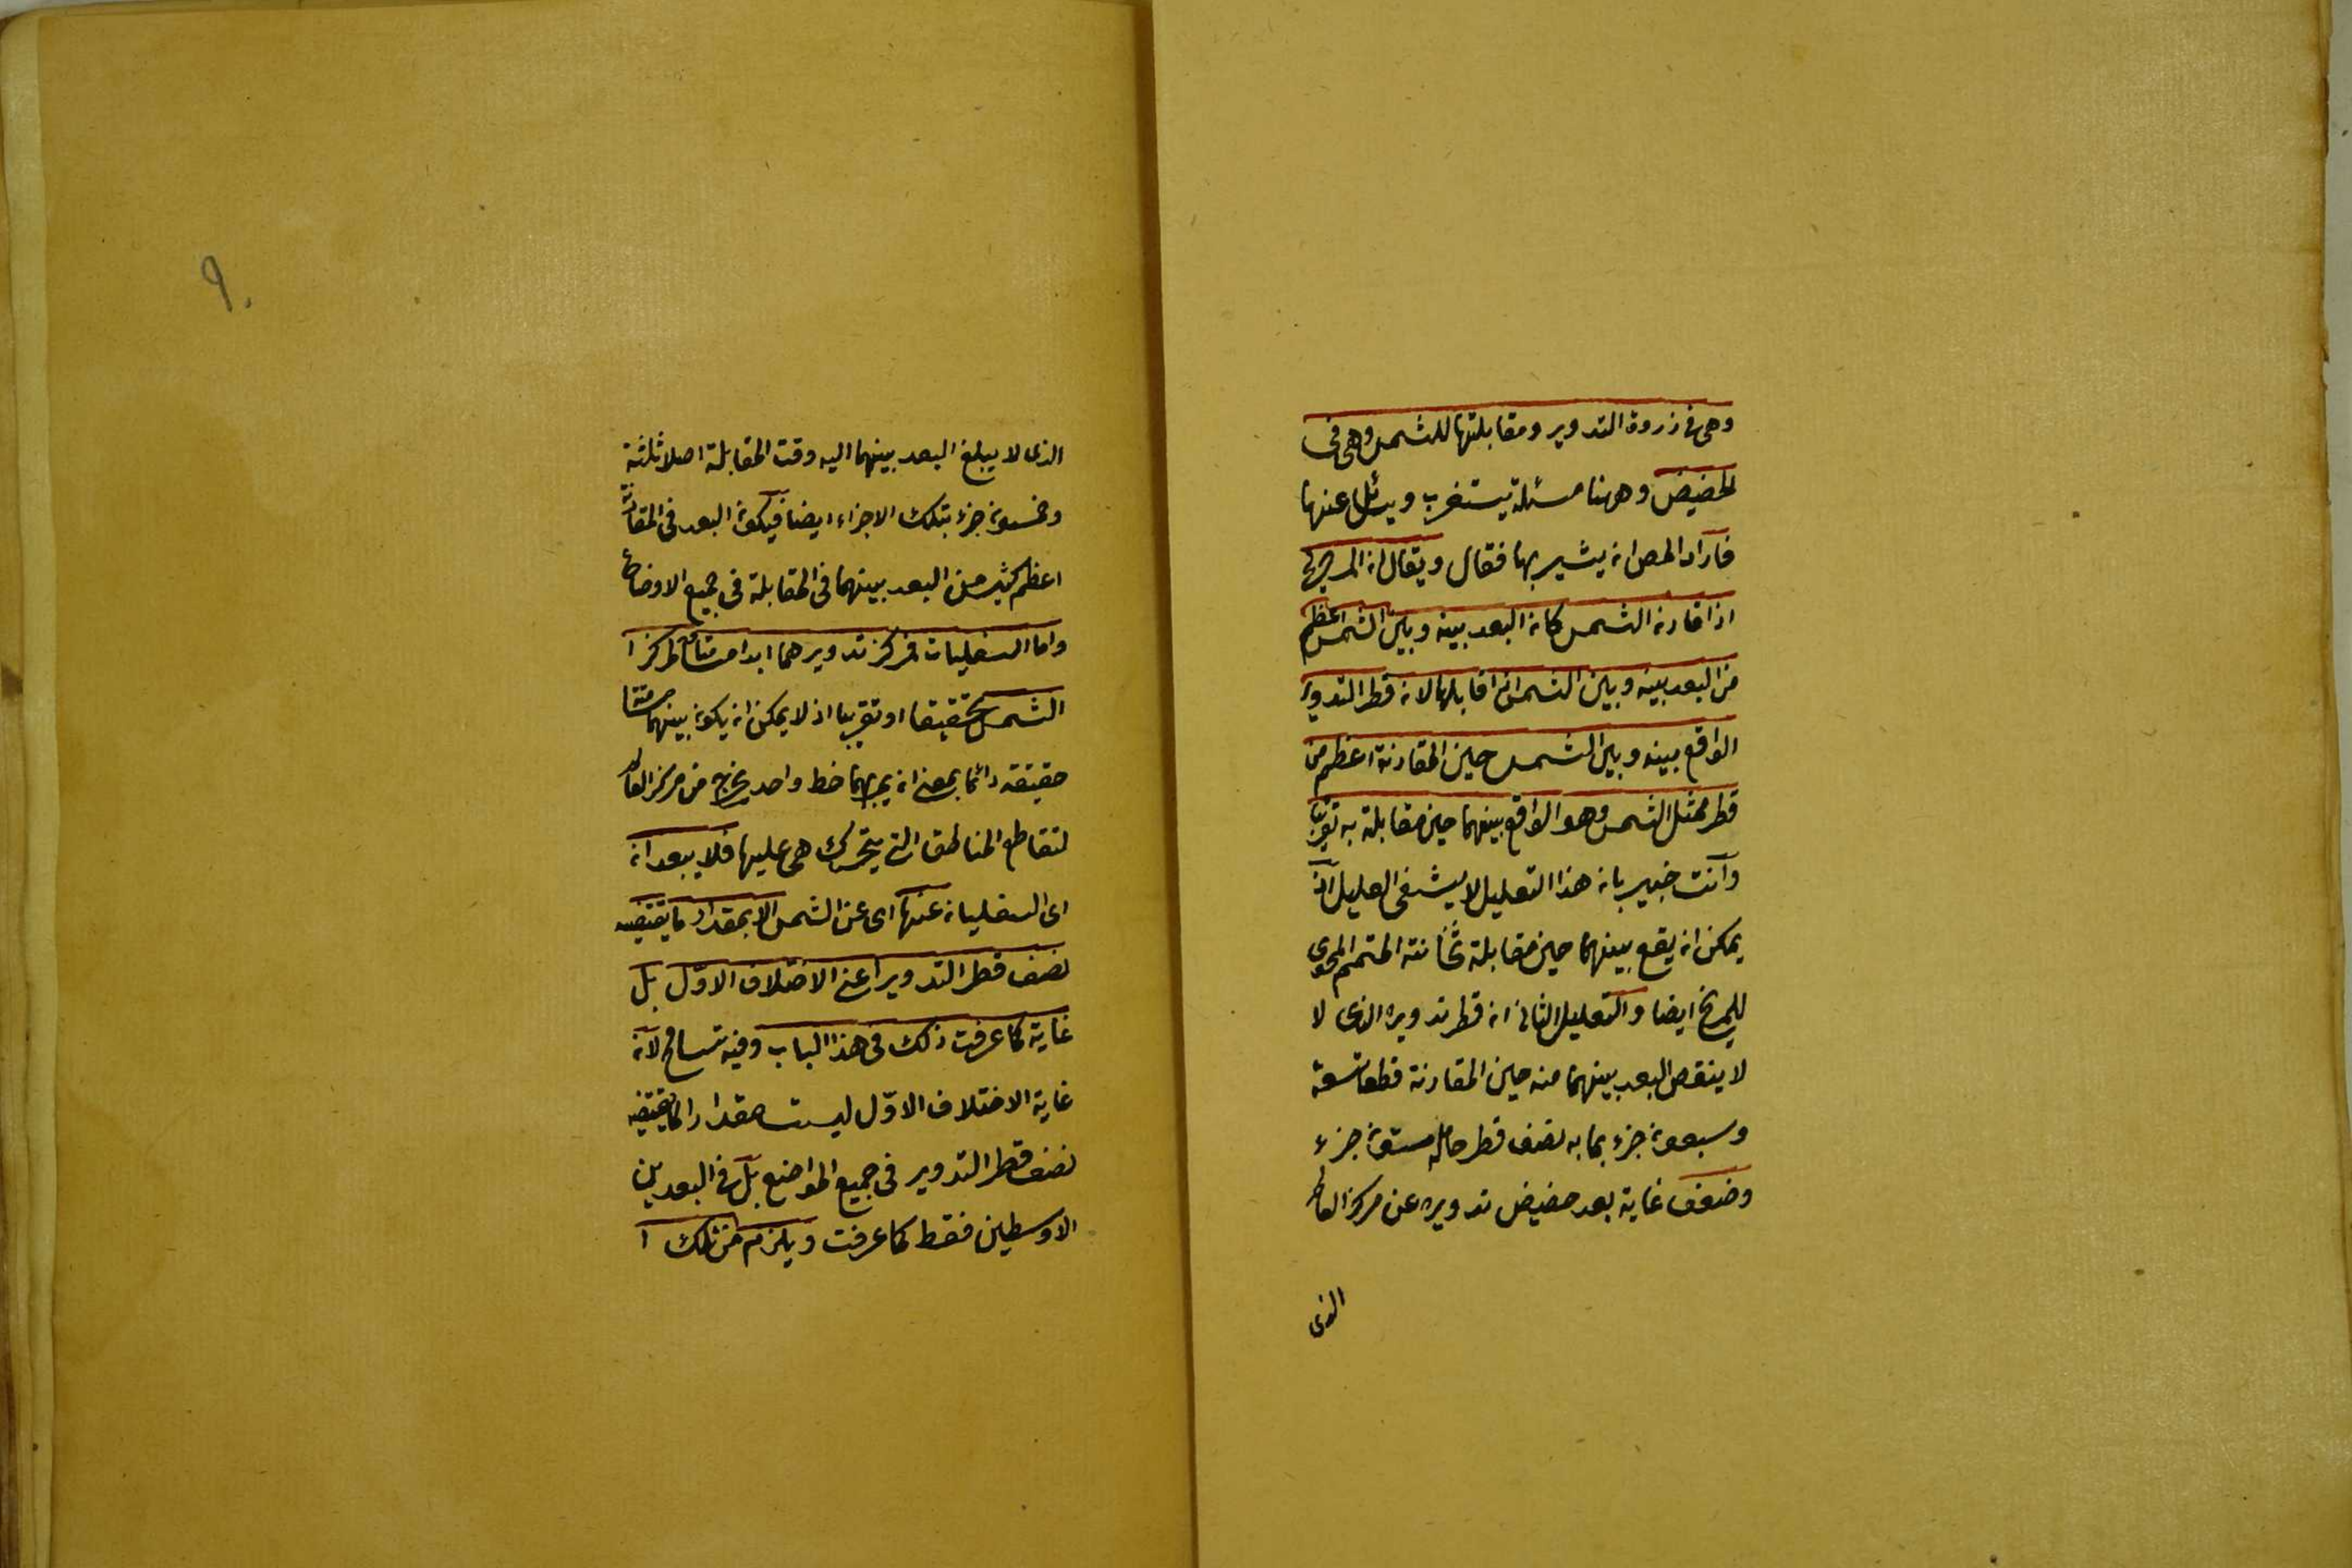 وهى فى ذروة التدوير ومقابلتها للشمس وهى فى
الحضيض وههنا مسئلة يستغرب ويسئل عنها
فاراد المص ان يشير بها فقال ويقال ان المريخ
اذا قارن الشمس كان البعد بينه وبين الشمس اعظم
من البعد بينه وبين الشمس اذا قابلها لان قطر التدوير
الواقع بينه وبين الشمس حين المقارنة اعظم من
قطر ممثل الشمس وهو الواقع بينهما حين مقابلة به تقريبا
وانت خبير بان هذا التعليل لا يشفى العليل اذ
يمكن ان يقع بينهما حين مقابلة ثخانته المتمم المحوى
للمريخ ايضا والتعليل الثانى ان قطر تدويره الذى لا
لا ينقص البعد بينهما منه حين المقارنة قطعا تسعة
وسبعون جزء بما به نصف قطر حامله ستون جزء
وضعف غاية بعد حضيض تدويره عن مركز العالم
الذى
٩٠
الذى لا يبلغ البعد بينهما اليه وقت المقابلة اصلا ثلثة
وخمسون جزء بتلك الاجزاء ايضا فيكون البعد فى المقارنة
اعظم كثير من البعد بينهما فى المقابلة فى جميع الاوضاع
واما السفليان فمركز تدويرهما ابدا مسامت لمركز ا
الشمس تحقيقا او تقريبا اذ لا يمكن ان يكون بينهما مسامتة
حقيقة دائما بمعنى ان يمر بهما خط واحد يخرج من مركز العالم
لتقاطع المناطق التى يتحرك هى عليها فلا يبعدان
اى السفليان عنها اى عن الشمس الا بمقدار ما يقتضيه
نصف قطر التدوير اعنى الاختلاف الاول بل
غاية كما عرفت ذلك فى هذا الباب وفيه تسامح لان
غاية الاختلاف الاول ليست مقدارا لما يقتضيه
نصف قطر التدوير فى جميع المواضع بل فى البعدين
الاوسطين فقط كما عرفت ويلزم من ذلك ا